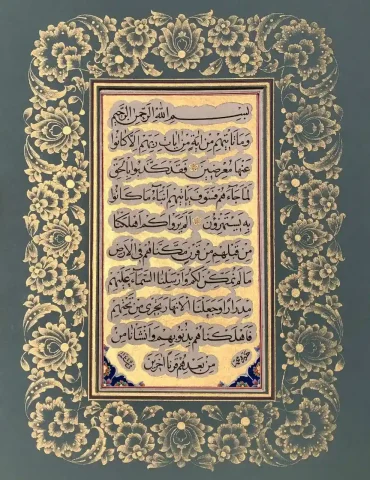 بسم الله الرحمن الرحيم
وما تأتيهم من آية من آيات ربهم إلا كانوا
عنها معرضين فقد كذبوا بالحق
لما جاءهم فسوف يأتيهم أنباء ما كانوا
به يستهزؤن ألم يروا كم أهلكنا
من قبلهم من قرن مكناهم في الأرض
ما لم نمكن لكم وأرسلنا السماء عليهم
مدرارا وجعلنا الأنهار تجري من تحتهم
فأهلكناهم بذنوبهم وأنشأنا من
من بعدهم قرنا آخرين